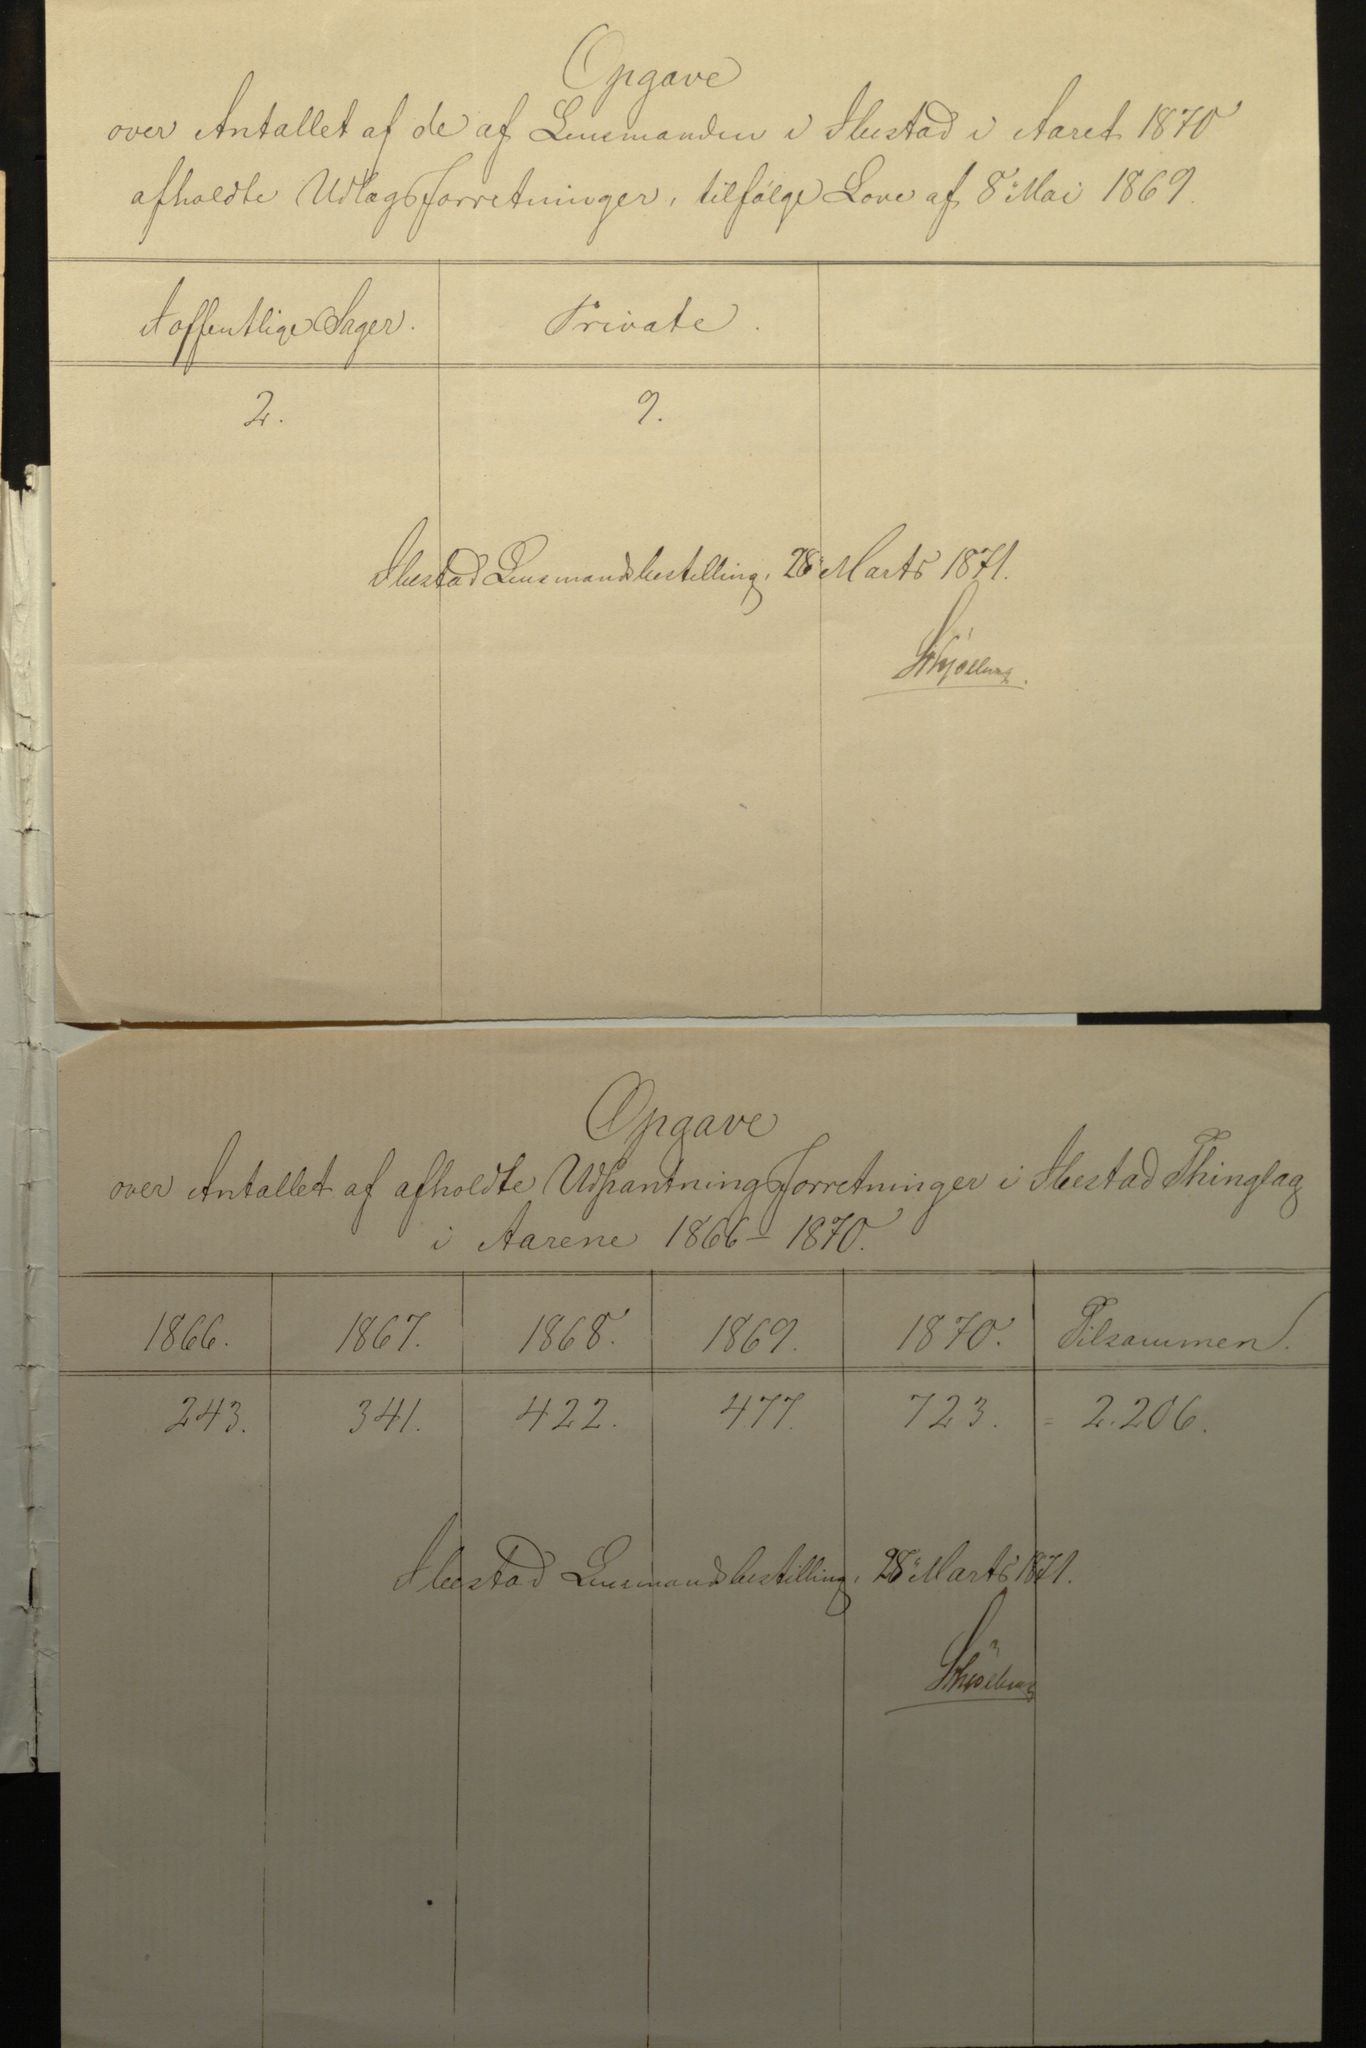 Opgave
over Antallet af de af Lensmanden i Ibestad i Aaret 1870
afholdte Udlægsforretninger, tilfølge Love af 8de Mai 1869.
I offentlige Sager. Private.
2. 9.
Ibestad Lensmandsbestilling, 28 Marts 1871.
Opgave
over Antallet af afholdte Udpantningsforretninger i Ibestad Thinglag
i Aarene 1866 - 1870.
1866. 1867. 1868. 1869. 1870. Tilsammen.
243. 341. 422. 477. 723. = 2.206.
Ibestad Lensmandsbestilling, 28 Marts 1871.